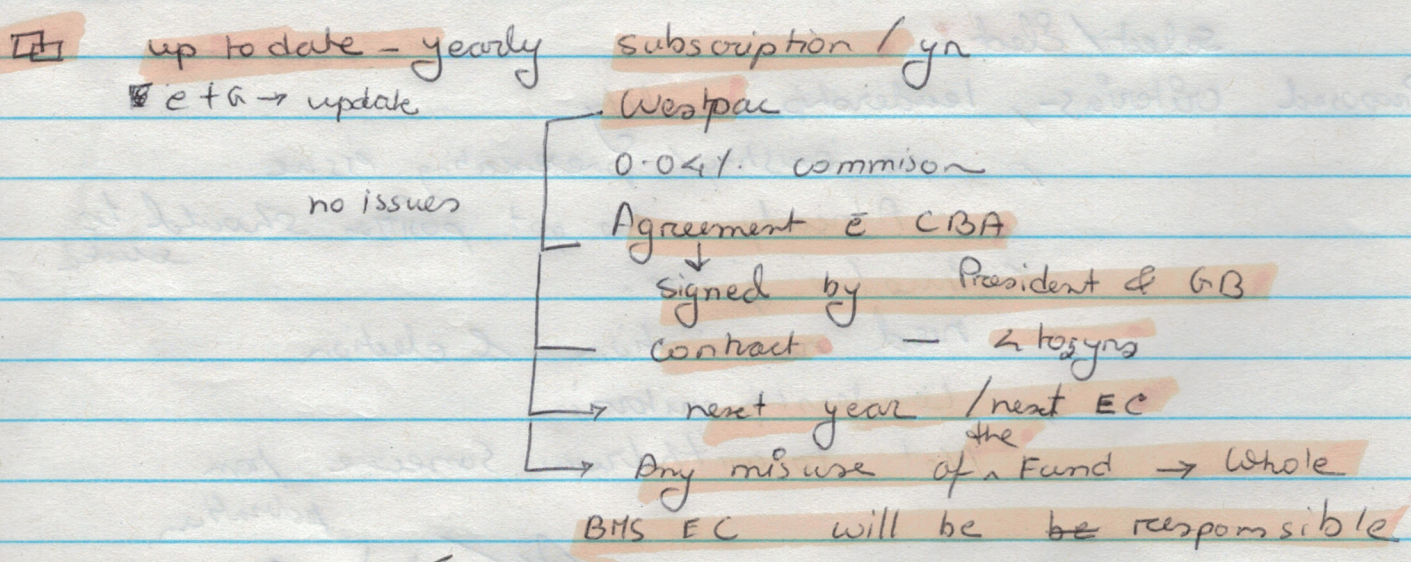 up to date - yearly subscription / yr
e + G → update
Westpac
0.04%. commison
no issues
Agreement c̄ CBA
↓
signed by President & GB
contract —
→ next year / next EC
→ Any misuse of the Fund → Whole
BMS EC will be be responsible